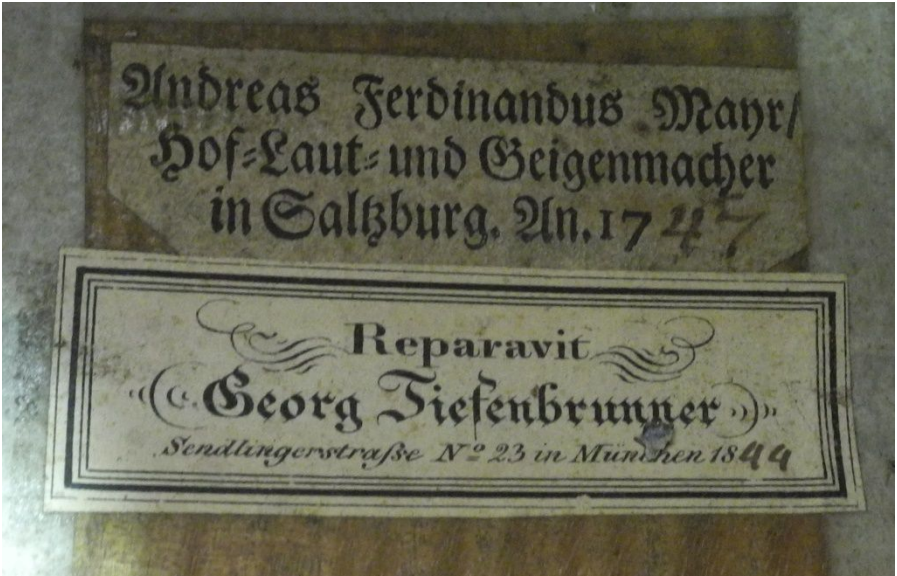 Andreas Ferdinandus Mayr/
Hof-Laut- und Geigenmacher
in Saltzburg. An. 1747
Reparavit
Georg Tiefenbrunner
Sendlingerstraße No 23 in München 1844